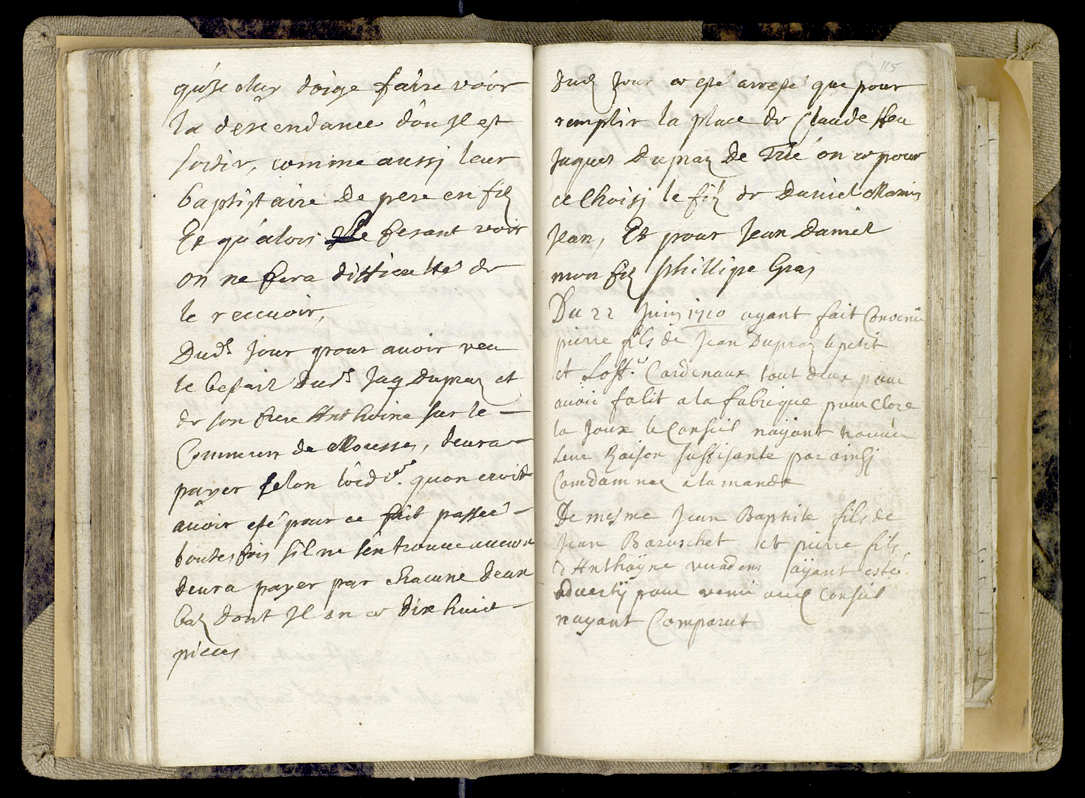 doige faire voir
la descendance d'ou Jl est
sortir, comme aussj leur
baptistaire De pere en filz
Et qu'alors Le fesant voir
on ne fera difficulté de
le recevoir,
Dudt Jour pour avoir veu
le bestail Dudt Jaq Dupraz et
de son frere Anthoine sur le
Commun de Mousse, deura
payer selon quon
avoir esté pour ce fait passée
toutesfois sil ne s'en trouve aucun
deura payer par chacune deux
batz dont Jl en a dixhuict
pieces
115
Dud Jour a esté arresté que pour
remplir la place de Claude Heu
Jaques Dupraz De on a pour
ce Choisj le filz de Daniel
Jean, Et pour Jean Daniel
mon filz Phillipe Gras
Du 22 Juin 1710 ayant fait Convenir
pierre fils de Jean Dupraz le petit
et Cardinaux tout deux pour
avoir falit a la fabrique pour Clore
la Joux le Conseil nayant trouvér
Leur Raison suffisante par ainsj
Comdamnez a lamande
De mesme Jean Baptiste fils de
Jean Baruschet et pierre fils
d'Anthoyne ayant esté
advertÿ pour venir aud Conseil
nayant Comparut